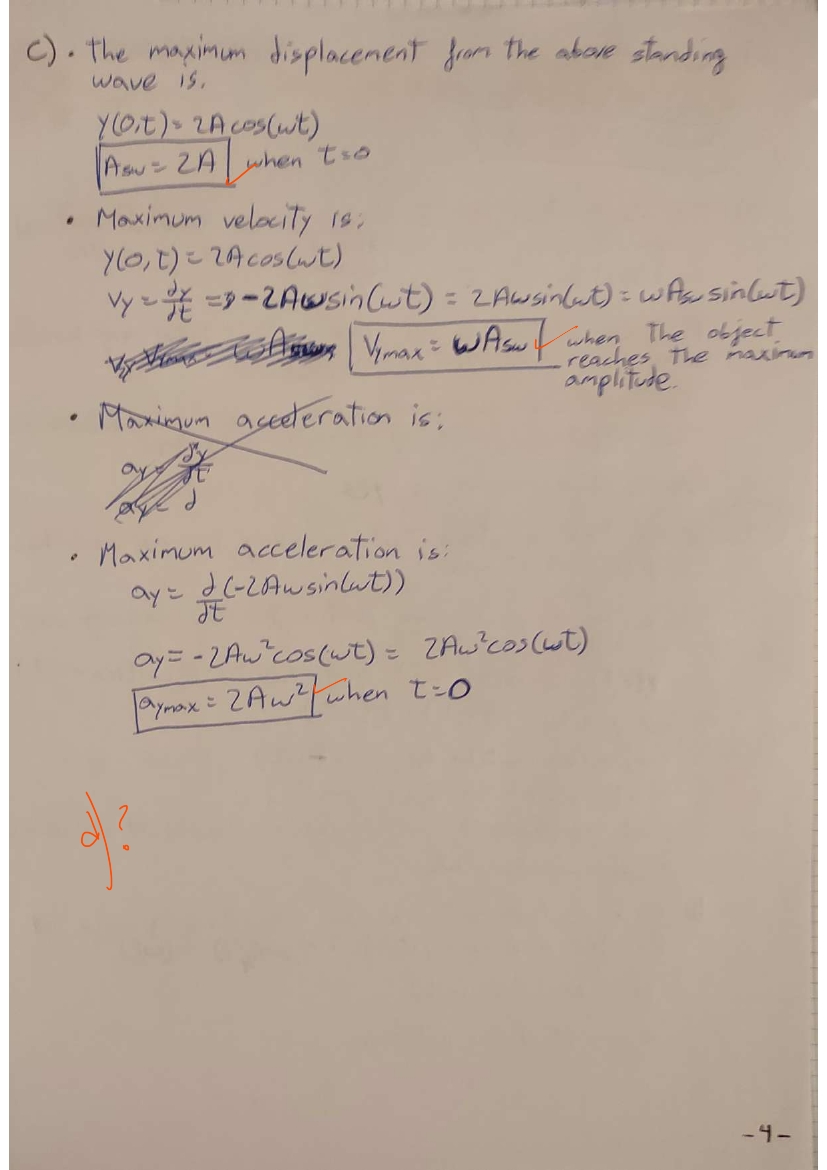 C) • The maximum displacement from the above standing
wave is,
y(0,t) = 2A cos(ωt)
Asw = 2A when t=0
• Maximum velocity is;
y(0,t) = 2A cos(ωt)
Vy = ∂y/∂t => -2Aωsin(ωt) = 2Aωsin(ωt) = ωAsw sin(ωt)
Vymax = ωAsw when the object
reaches the maximum
amplitude.
• Maximum acceleration is;
ay = ∂y/∂t
ay = ∂
• Maximum acceleration is:
ay = ∂/∂t (-2Aωsin(ωt))
ay = -2Aω²cos(ωt) = 2Aω²cos(ωt)
aymax = 2Aω² when t=0
d) ?
-4-